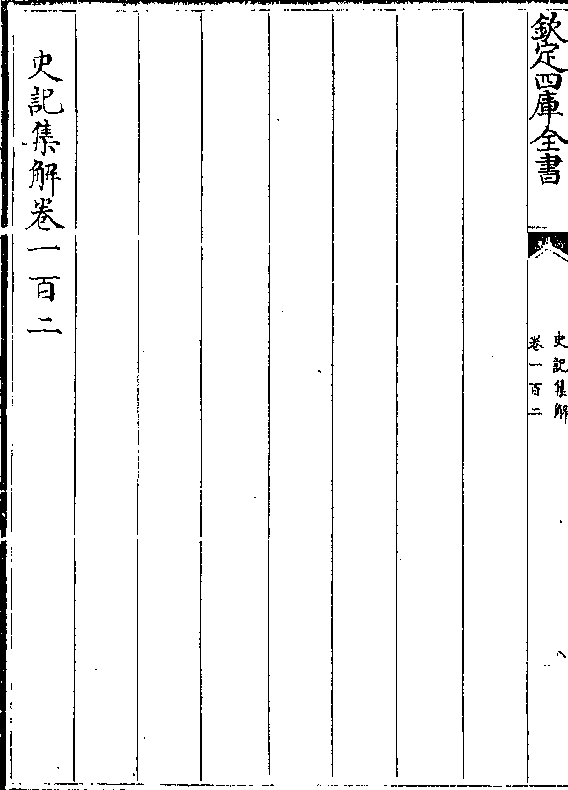 欽定四庫全書
史記集解
卷一百二
八
史記集解卷一百二